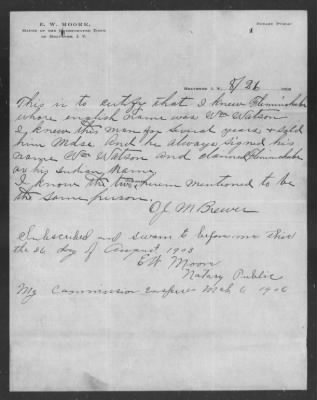 E. W. MOORE,
MAYOR OF THE INCORPORATED TOWN
OF HOLTOWN, I. T.
NOTARY PUBLIC
I. T., 8/26 190
This is to certify that I knew
whose english name was Wm Watson
I knew this man for several years & sold
him Mdse. And he always signed his
name Wm Watson and claimed
as his Indian Name.
I know the two men mentioned to be
the same person.
J M Brewer
Subscribed and sworn to before me this
the 26 day of August 1903
E W Moore
Notary Public
My Commission expires Mch 6 1906